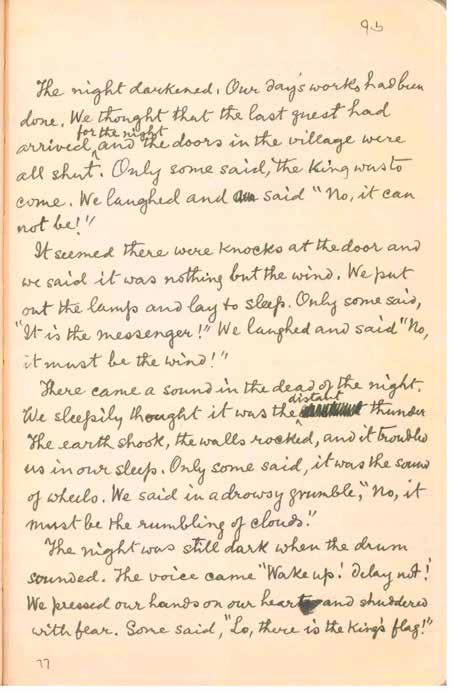 95
The night darkened. Our day's works had been
done. We thought that the last guest had
for the night
arrived and the doors in the village were
all shut. Only some said, the King was to
come. We laughed and said "No, it can
not be!"
It seemed there were knocks at the door and
we said it was nothing but the wind. We put
out the lamps and lay to sleep. Only some said,
"It is the messenger!" We laughed and said "No,
it must be the wind!"
There came a sound in the dead of the night.
distant
We sleepily thought it was the thunder
The earth shook, the walls rocked, and it troubled
us in our sleep. Only some said, it was the sound
of wheels. We said in a drowsy grumble, "No, it
must be the rumbling of clouds."
The night was still dark when the drum
sounded. The voice came "Wake up! Delay not!
We pressed our hands on our heart and shuddered
with fear. Some said, "Lo, there is the King's flag!"
77